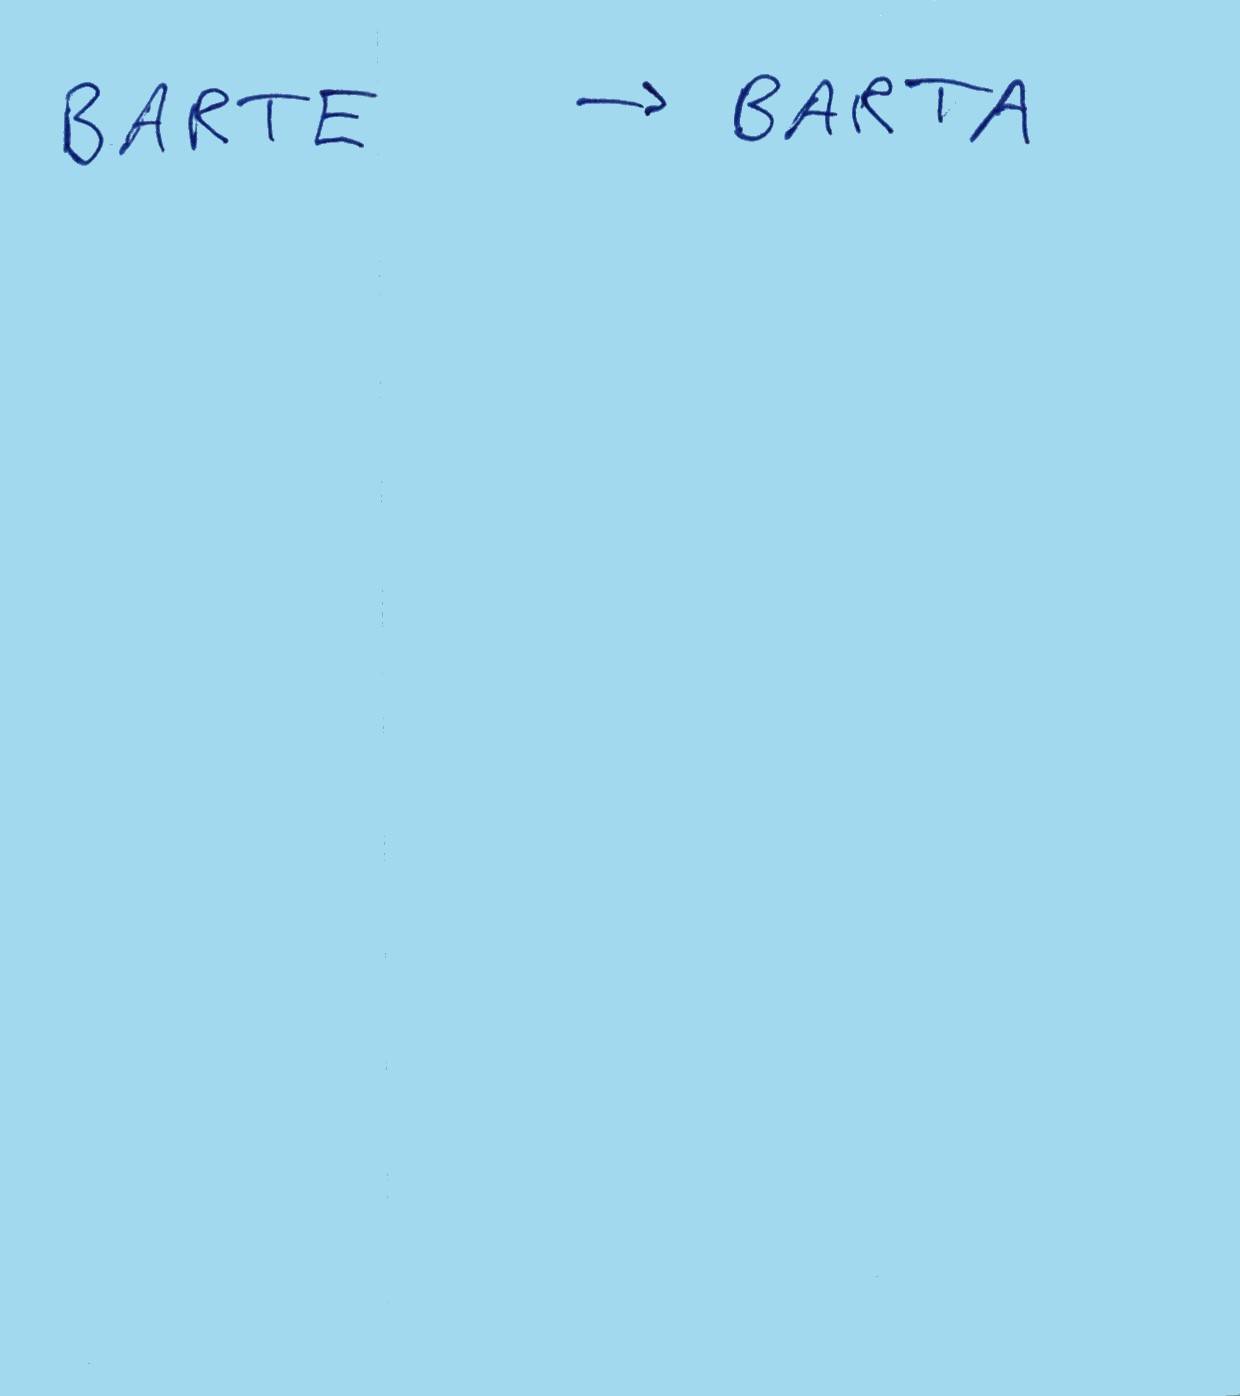 BARTE → BARTA